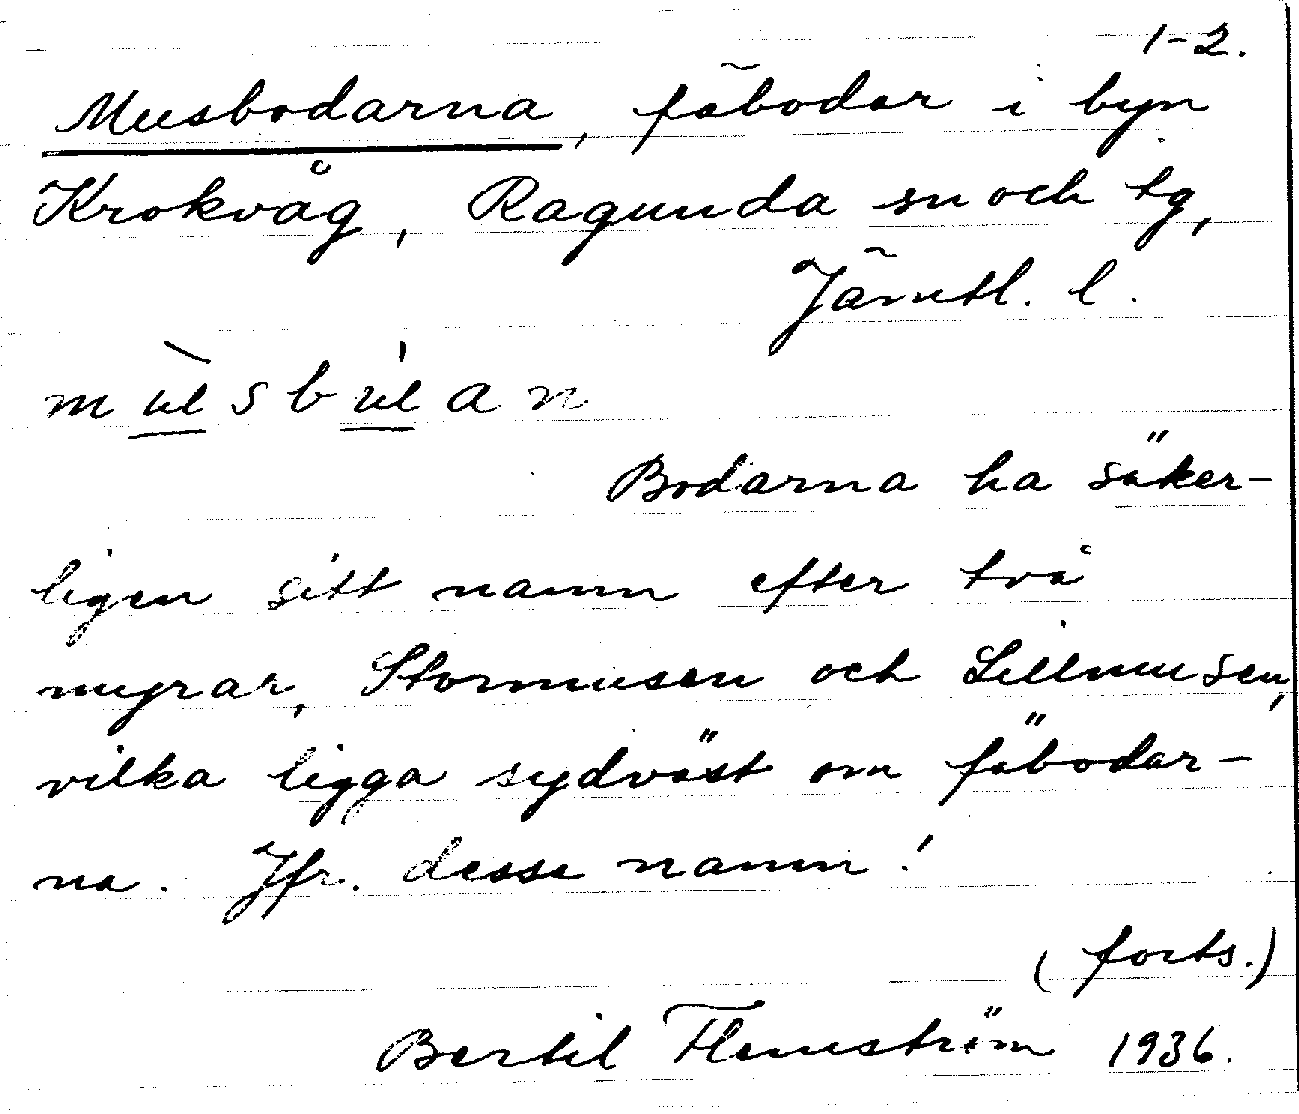 1-2.
Musbodarna, fäbodar i byn
Krokvåg, Ragunda sn och tg,
Jämtl. l.
mùsbúan
Bodarna ha säker-
ligen sitt namn efter två
myrar, Stormusen och Lillmusen,
vilka ligga sydväst om fäbodar-
na. Jfr. desse namn!
(forts.)
Bertil Flemström 1936.